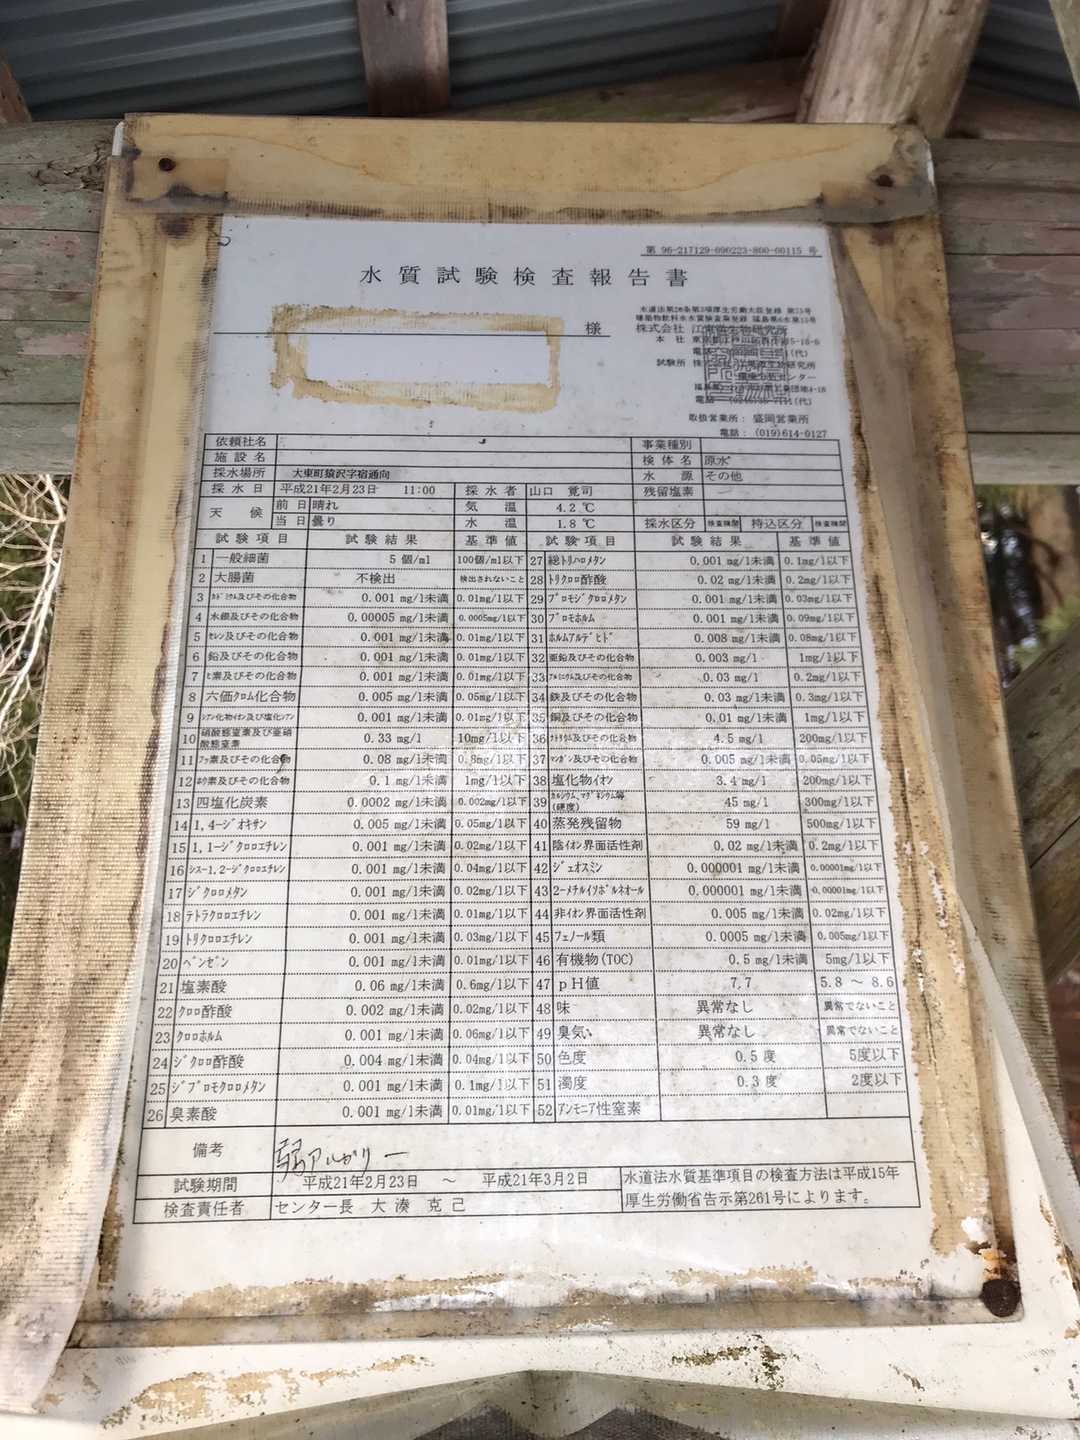 第 96-217129-090223-800-00115 号
水質試験検査報告書
様
水道法第20条第3項厚生労働大臣登録 第23号
株式会社 江東微生物研究所
本社
電話 (代)
試験所
電話 (代)
取扱営業所： 盛岡営業所
電話： (019)614-0127
依頼社名 事業種別
施設名 検体名 原水
採水場所 大東町猿沢字宿通向 水源 その他
採水日 平成21年2月23日 11:00 採水者 山口 覚司 残留塩素
天候 前日 晴れ 気温 4.2 ℃
当日 曇り 水温 1.8 ℃ 採水区分 検査機関 持込区分 検査機関
試験項目 試験結果 基準値 試験項目 試験結果 基準値
1 一般細菌 5 個/ml 100個/ml以下 27 総トリハロメタン 0.001 mg/l未満 0.1mg/l以下
2 大腸菌 不検出 検出されないこと 28 トリクロロ酢酸 0.02 mg/l未満 0.2mg/l以下
3 カドミウム及びその化合物 0.001 mg/l未満 0.01mg/l以下 29 ブロモジクロロメタン 0.001 mg/l未満 0.03mg/l以下
4 水銀及びその化合物 0.00005 mg/l未満 0.0005mg/l以下 30 ブロモホルム 0.001 mg/l未満 0.09mg/l以下
5 セレン及びその化合物 0.001 mg/l未満 0.01mg/l以下 31 ホルムアルデヒド 0.008 mg/l未満 0.08mg/l以下
6 鉛及びその化合物 0.001 mg/l未満 0.01mg/l以下 32 亜鉛及びその化合物 0.003 mg/l 1mg/l以下
7 ヒ素及びその化合物 0.001 mg/l未満 0.01mg/l以下 33 アルミニウム及びその化合物 0.03 mg/l 0.2mg/l以下
8 六価クロム化合物 0.005 mg/l未満 0.05mg/l以下 34 鉄及びその化合物 0.03 mg/l未満 0.3mg/l以下
9 シアン化物イオン及び塩化シアン 0.001 mg/l未満 0.01mg/l以下 35 銅及びその化合物 0.01 mg/l未満 1mg/l以下
10 硝酸態窒素及び亜硝酸態窒素 0.33 mg/l 10mg/l以下 36 ナトリウム及びその化合物 4.5 mg/l 200mg/l以下
11 フッ素及びその化合物 0.08 mg/l未満 0.8mg/l以下 37 マンガン及びその化合物 0.005 mg/l未満 0.05mg/l以下
12 ホウ素及びその化合物 0.1 mg/l未満 1mg/l以下 38 塩化物イオン 3.4 mg/l 200mg/l以下
13 四塩化炭素 0.0002 mg/l未満 0.002mg/l以下 39 カルシウム、マグネシウム等(硬度) 45 mg/l 300mg/l以下
14 1,4-ジオキサン 0.005 mg/l未満 0.05mg/l以下 40 蒸発残留物 59 mg/l 500mg/l以下
15 1,1-ジクロロエチレン 0.001 mg/l未満 0.02mg/l以下 41 陰イオン界面活性剤 0.02 mg/l未満 0.2mg/l以下
16 シス-1,2-ジクロロエチレン 0.001 mg/l未満 0.04mg/l以下 42 ジェオスミン 0.000001 mg/l未満 0.00001mg/l以下
17 ジクロロメタン 0.001 mg/l未満 0.02mg/l以下 43 2-メチルイソボルネオール 0.000001 mg/l未満 0.00001mg/l以下
18 テトラクロロエチレン 0.001 mg/l未満 0.01mg/l以下 44 非イオン界面活性剤 0.005 mg/l未満 0.02mg/l以下
19 トリクロロエチレン 0.001 mg/l未満 0.03mg/l以下 45 フェノール類 0.0005 mg/l未満 0.005mg/l以下
20 ベンゼン 0.001 mg/l未満 0.01mg/l以下 46 有機物(TOC) 0.5 mg/l未満 5mg/l以下
21 塩素酸 0.06 mg/l未満 0.6mg/l以下 47 pH値 7.7 5.8 ～ 8.6
22 クロロ酢酸 0.002 mg/l未満 0.02mg/l以下 48 味 異常なし 異常でないこと
23 クロロホルム 0.001 mg/l未満 0.06mg/l以下 49 臭気 異常なし 異常でないこと
24 ジクロロ酢酸 0.004 mg/l未満 0.04mg/l以下 50 色度 0.5 度 5度以下
25 ジブロモクロロメタン 0.001 mg/l未満 0.1mg/l以下 51 濁度 0.3 度 2度以下
26 臭素酸 0.001 mg/l未満 0.01mg/l以下 52 アンモニア性窒素
備考 弱アルカリー
試験期間 平成21年2月23日 ～ 平成21年3月2日 水道法水質基準項目の検査方法は平成15年
厚生労働省告示第261号によります。
検査責任者 センター長 大湊 克己